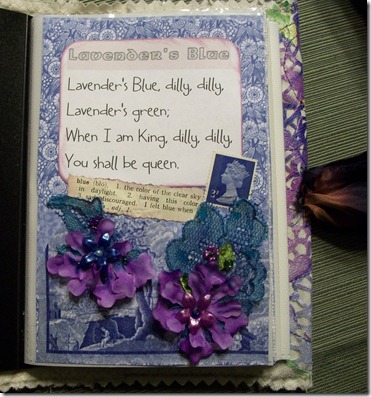 Lavender's Blue
Lavender's Blue, dilly, dilly,
Lavender's green;
When I am King, dilly, dilly,
You shall be queen.
blue (blo), 1. the color of the clear sky
in daylight. 2. having this color
3. sad; discouraged. I felt blue when